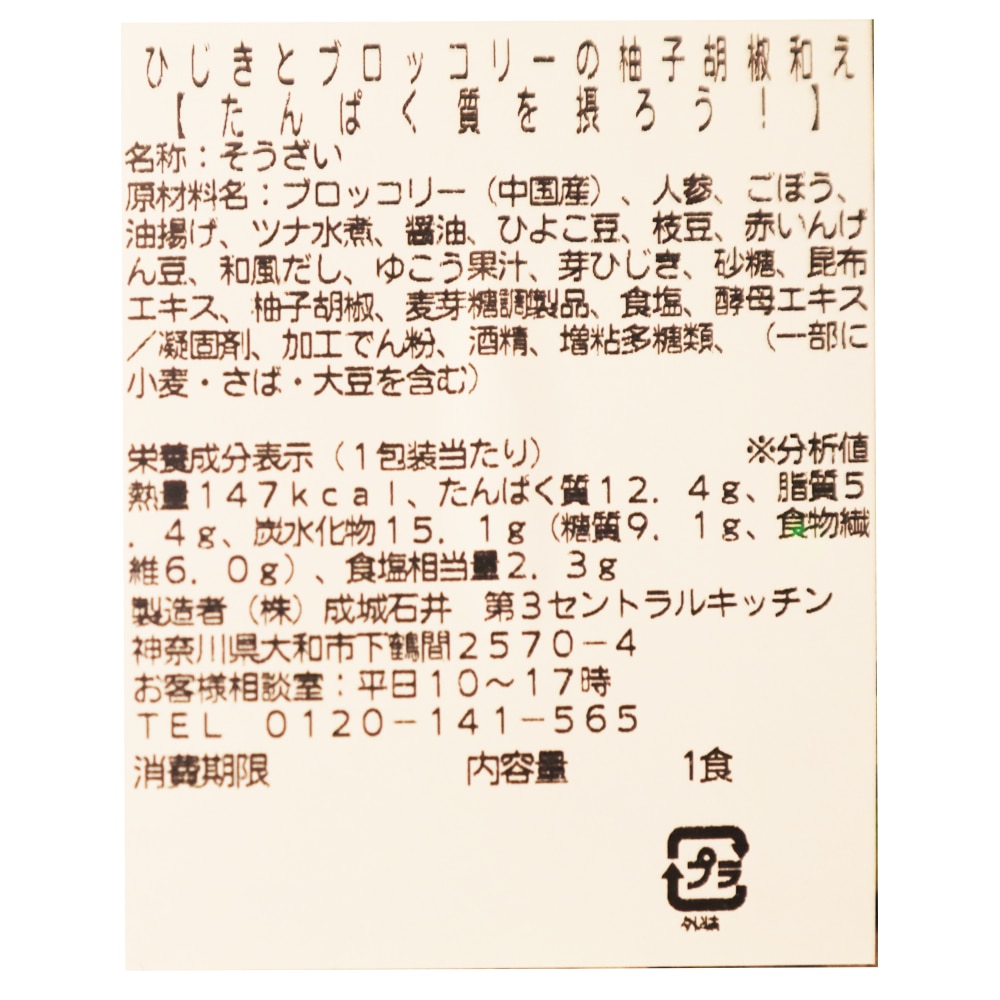 ひじきとブロッコリーの柚子胡椒和え
【たんぱく質を摂ろう！】
名称：そうざい
原材料名：ブロッコリー（中国産）、人参、ごぼう、
油揚げ、ツナ水煮、醤油、ひよこ豆、枝豆、赤いんげ
ん豆、和風だし、ゆこう果汁、芽ひじき、砂糖、昆布
エキス、柚子胡椒、麦芽糖調製品、食塩、酵母エキス
／凝固剤、加工でん粉、酒精、増粘多糖類、（一部に
小麦・さば・大豆を含む）
栄養成分表示（１包装当たり） ※分析値
熱量１４７ｋｃａｌ、たんぱく質１２．４ｇ、脂質５
．４ｇ、炭水化物１５．１ｇ（糖質９．１ｇ、食物繊
維６．０ｇ）、食塩相当量２．３ｇ
製造者（株）成城石井　第３セントラルキッチン
神奈川県大和市下鶴間２５７０－４
お客様相談室：平日１０～１７時
ＴＥＬ　０１２０－１４１－５６５
消費期限 内容量 1食
プラ